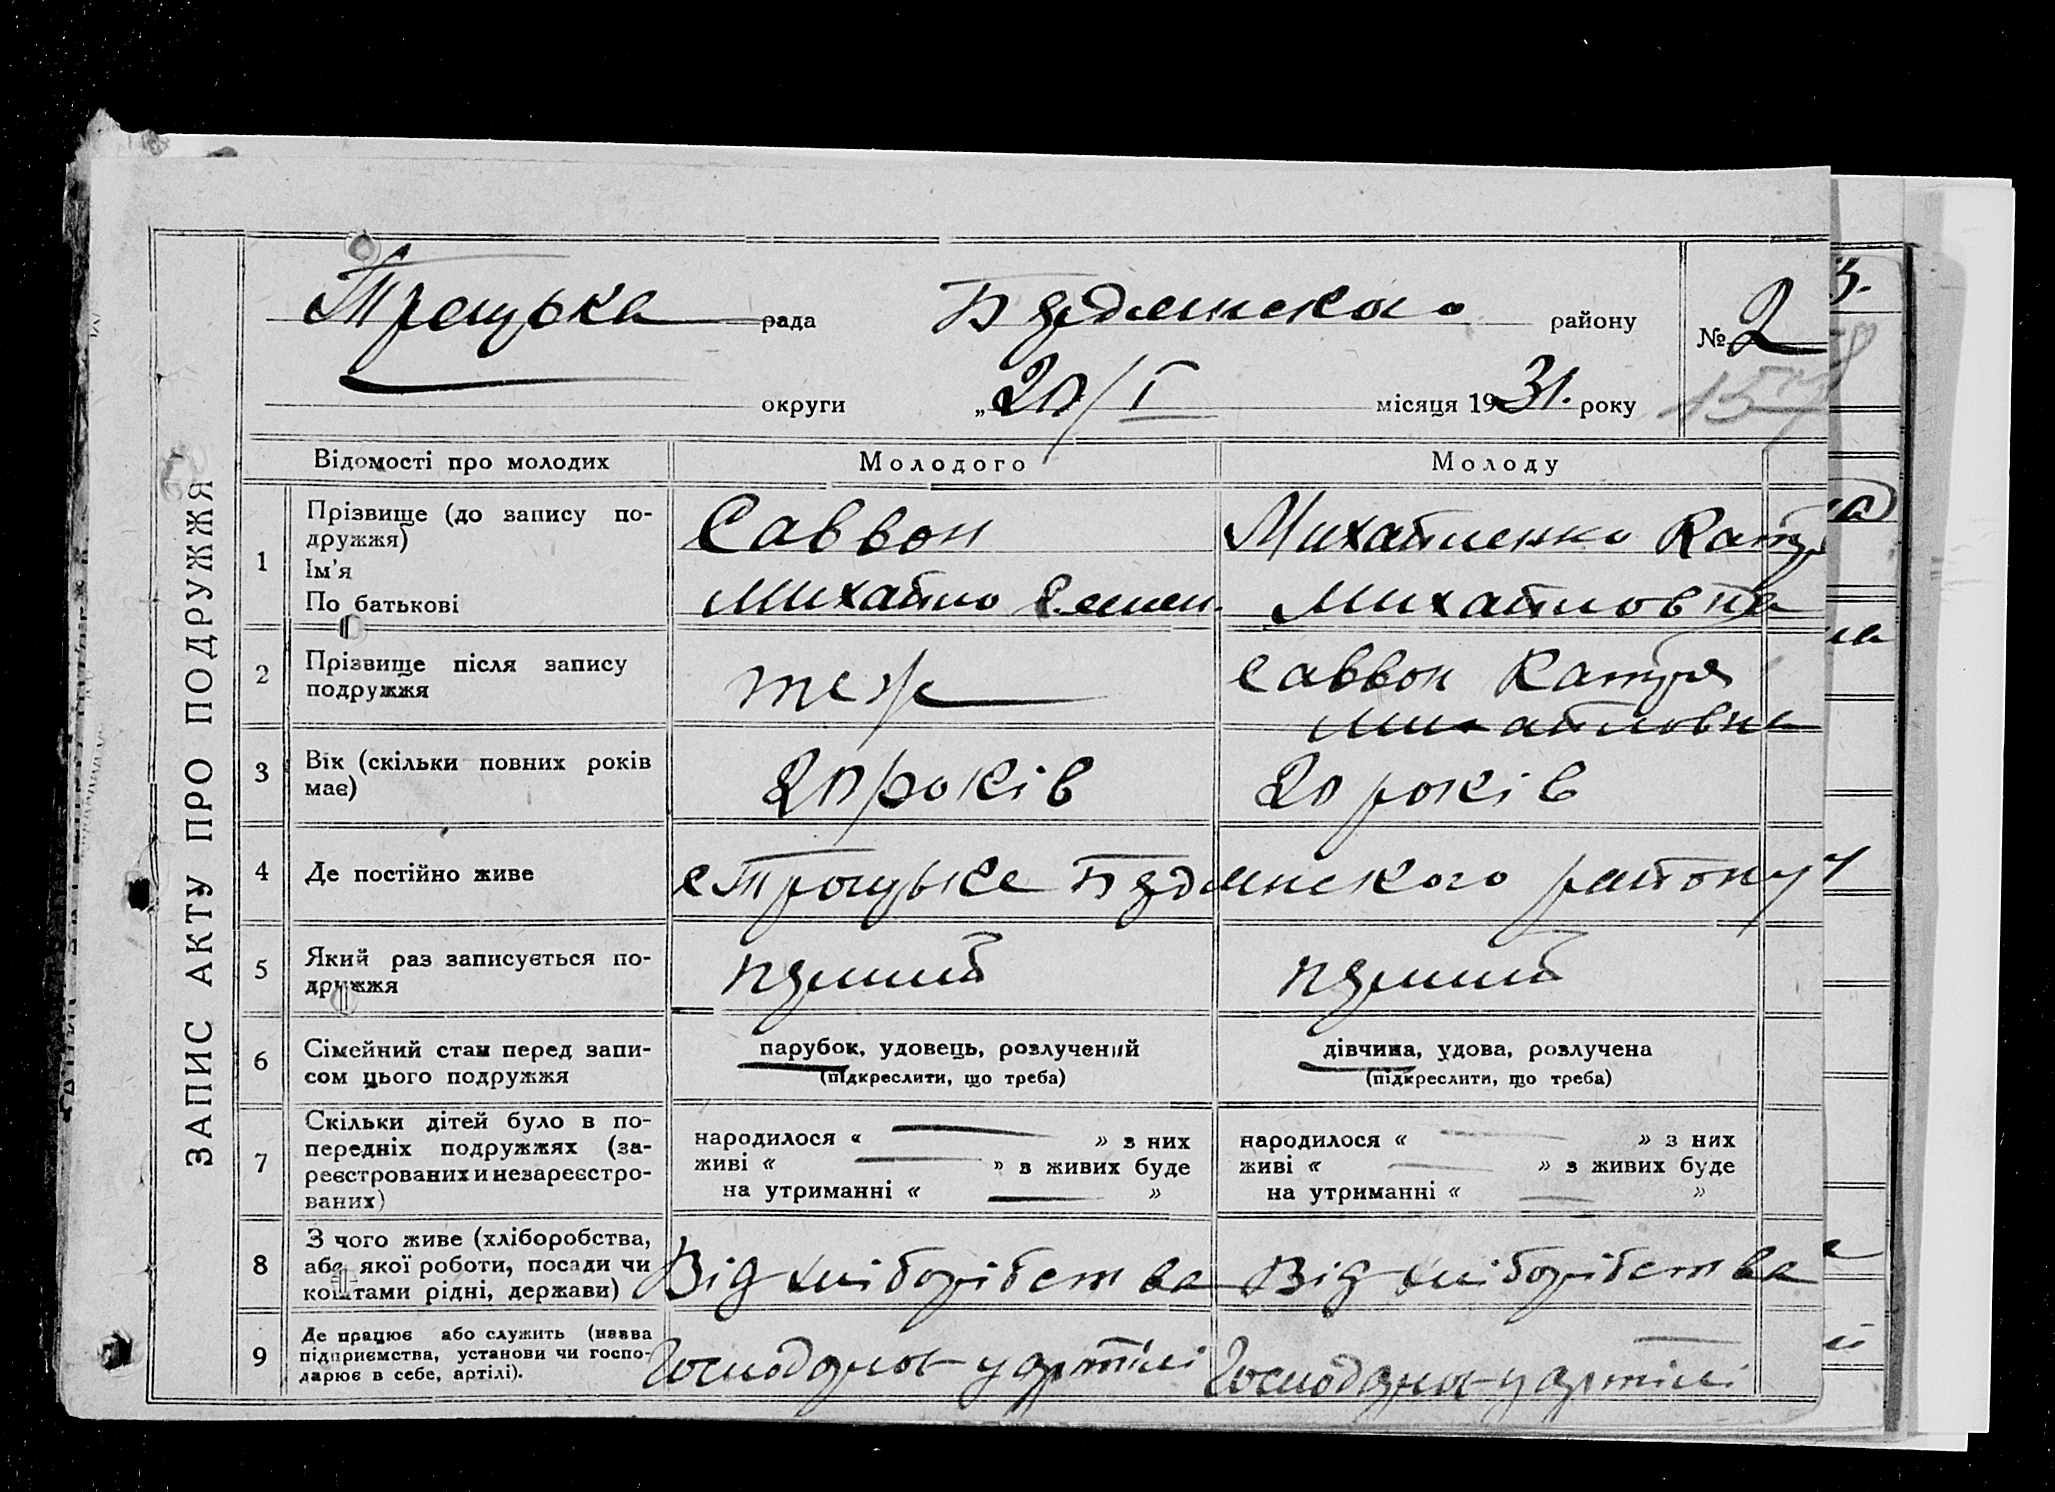 ЗАПИС АКТУ ПРО ПОДРУЖЖЯ
Троцька рада Буденского району № 2
округи „20/I місяця 1931. року
Відомості про молодих Молодого Молоду
1 Прізвище (до запису по-
дружжя)
Ім'я
По батькові
Саввон
Михайло Семен.
Михайленко Катр
Михайловна
2 Прізвище після запису
подружжя
теж
Саввон Катря
Михайловна
3 Вік (скільки повних років
має)
20 років
20 років
4 Де постійно живе
с Троцьке Буденского району
5 Який раз записується по-
дружжя
перший
перший
6 Сімейний стан перед запи-
сом цього подружжя
парубок, удовець, розлучений
(підкреслити, що треба)
дівчина, удова, розлучена
(підкреслити, що треба)
7 Скільки дітей було в по-
передніх подружжях (за-
реєстрованих и незареєстро-
ваних)
народилося « — » з них
живі « — » в живих буде
на утриманні « — »
народилося « — » з них
живі « — » з живих буде
на утриманні « — »
8 З чого живе (хліборобства,
або якої роботи, посади чи
коштами рідні, держави)
Від хліборібства
Від хліборібства
9 Де працює або служить (назва
підприємства, установи чи госпо-
дарює в себе, артілі).
Господарює у артілі
Господарює у артілі